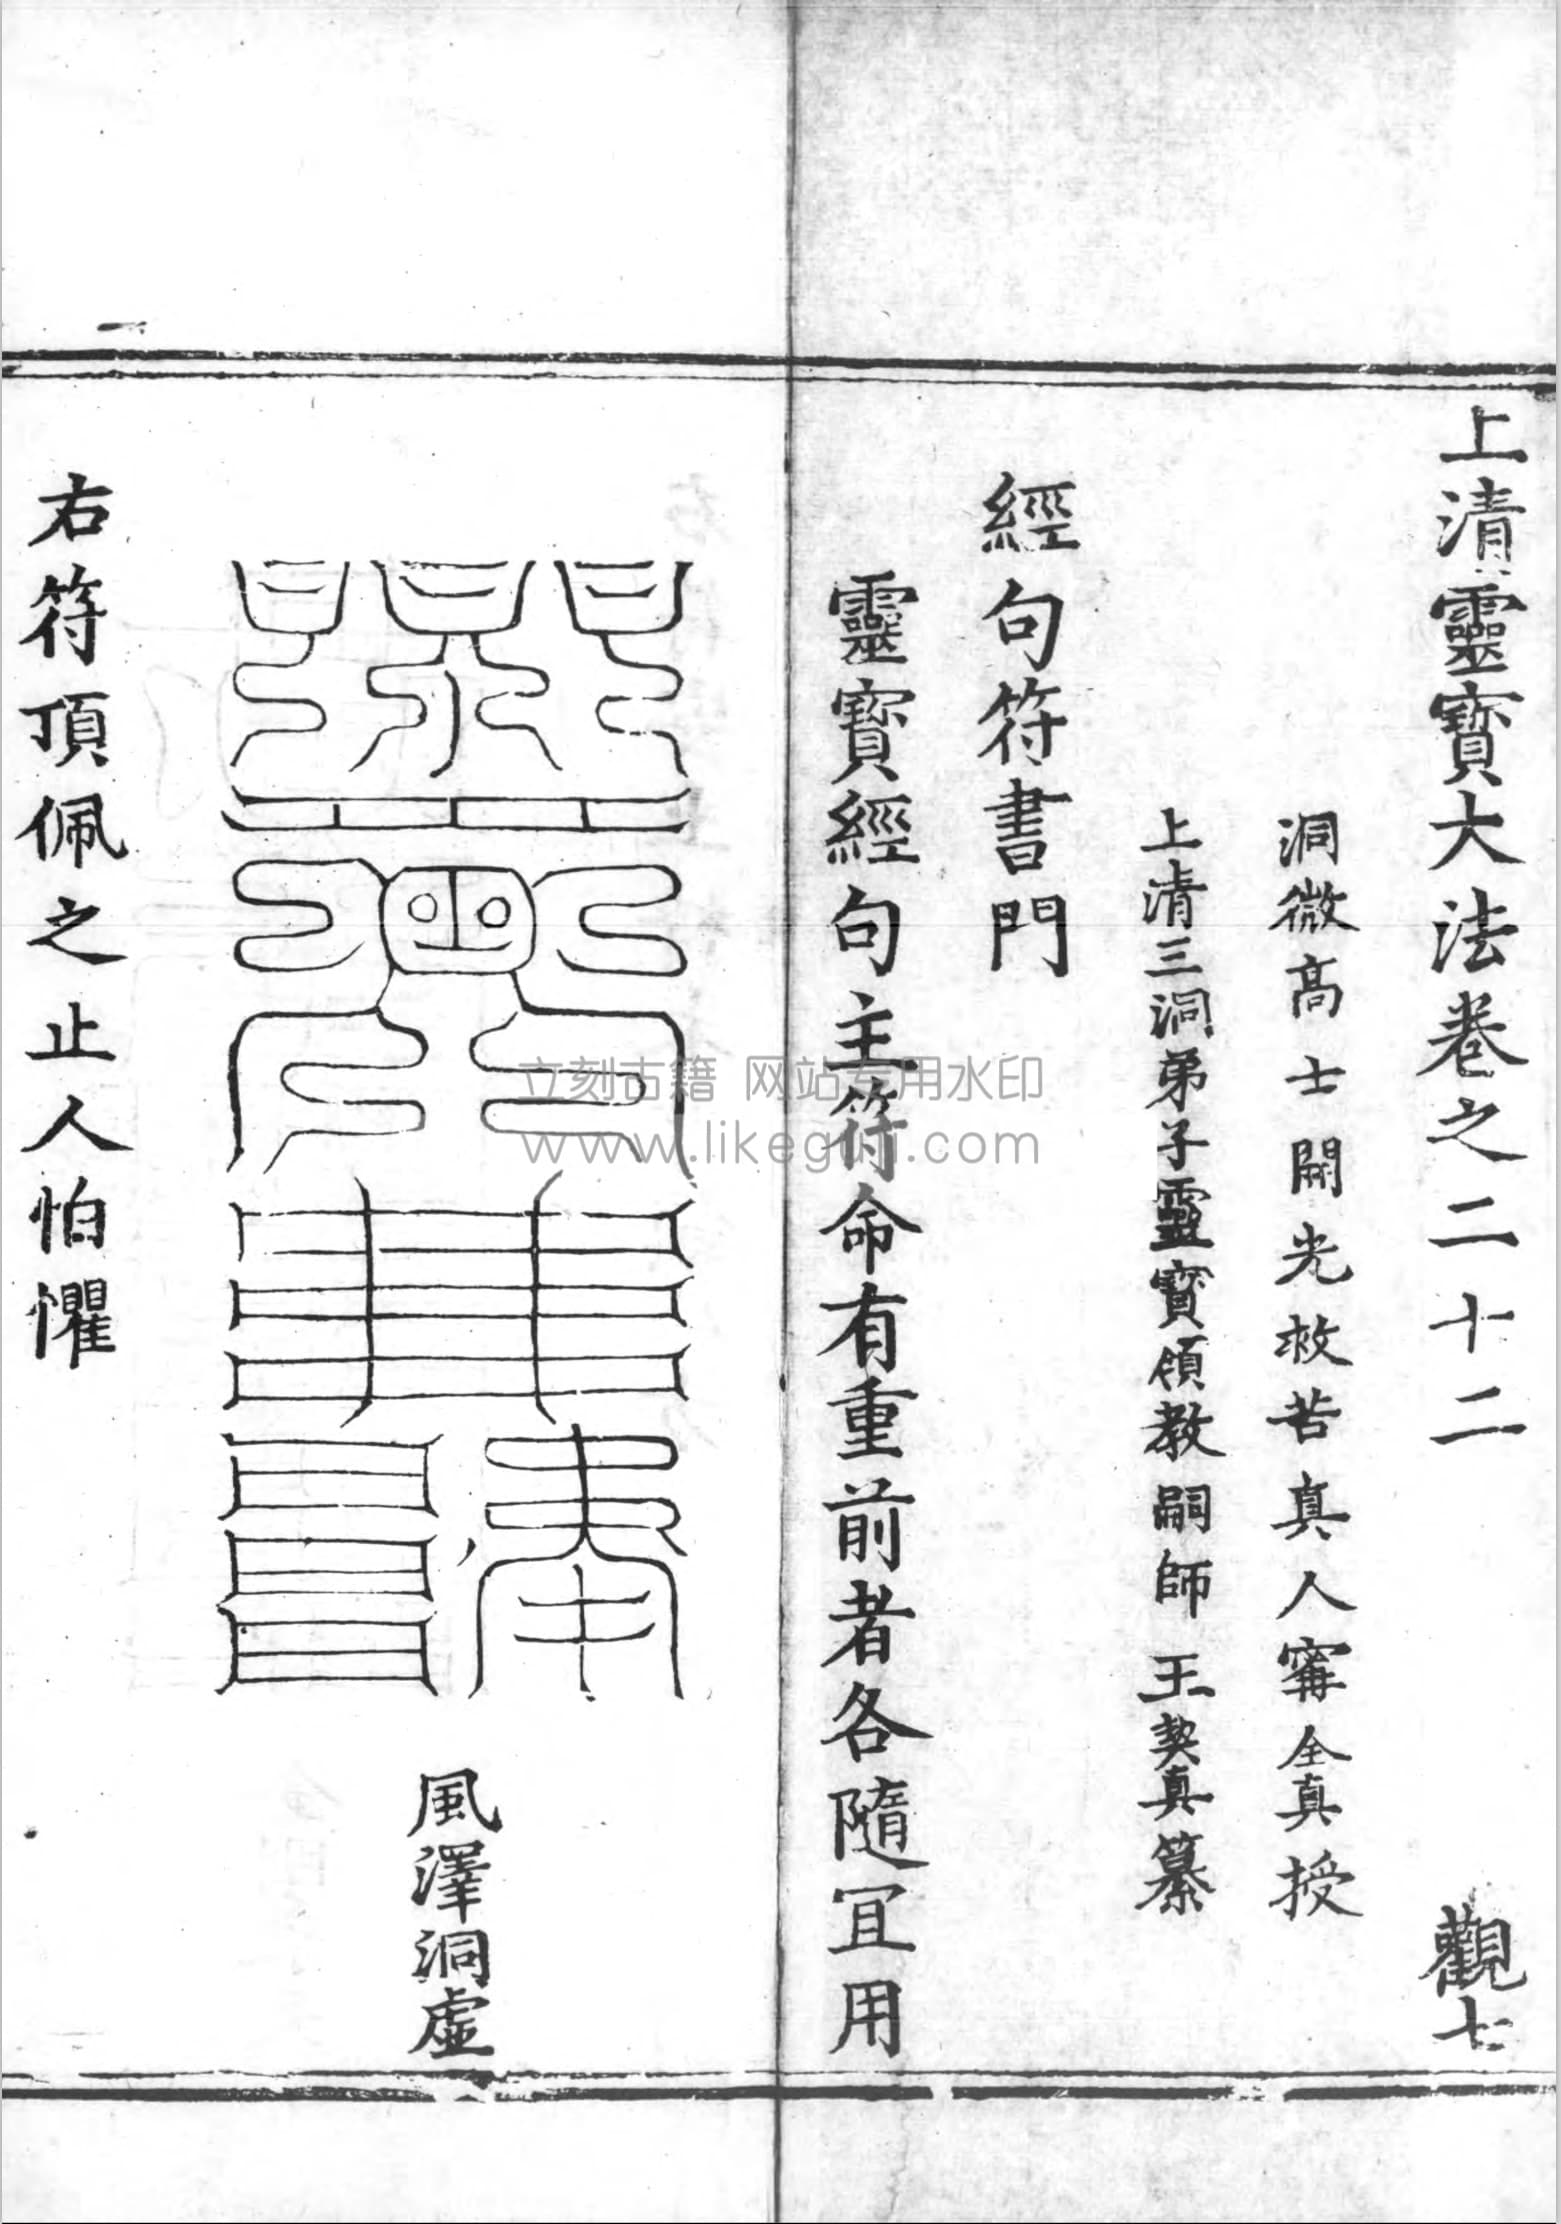 上清靈寶大法卷之二十二 觀七
洞微高士開光救苦真人寗全真授
上清三洞弟子靈寶領教嗣師王契真纂
經句符書門
靈寶經句主符命有重前者各隨冝用
風澤洞虛
右符頂佩之止人怕懼
立刻古籍 网站专用水印
www.likeguji.com